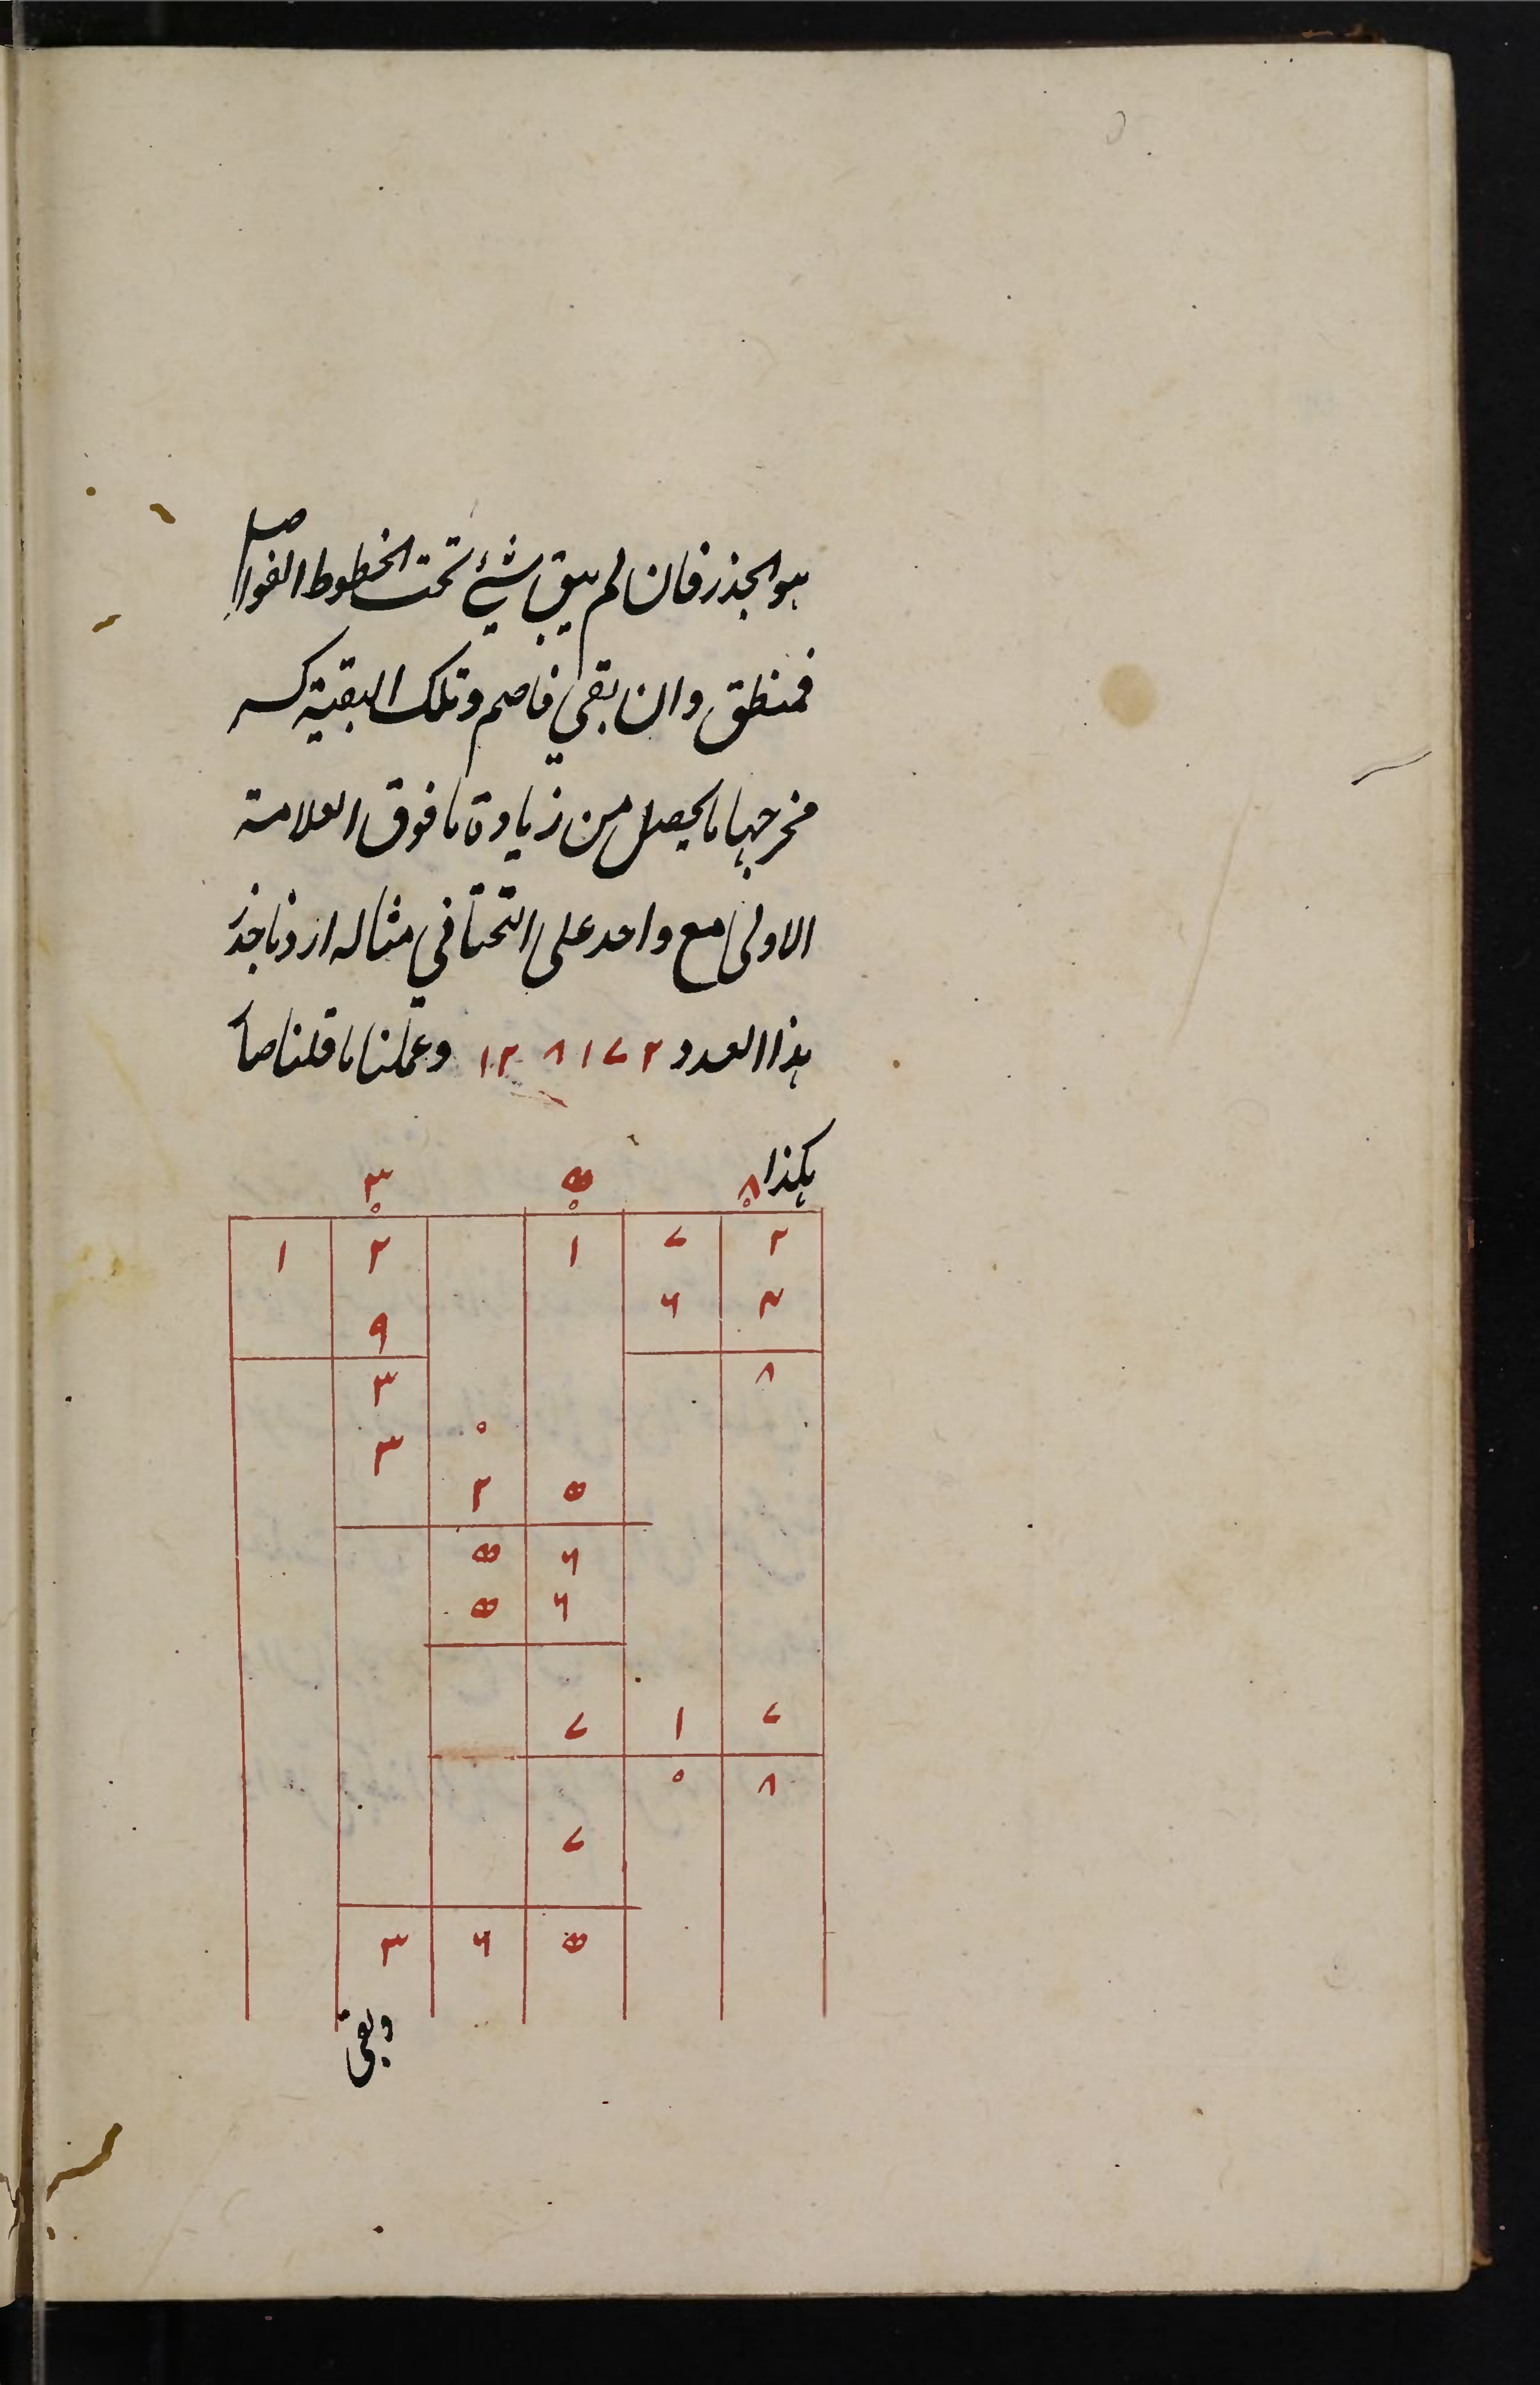 هو الجذر فان لم يبق شئ تحت الخطوط الفواصل
فمنطق وان بقي فاصم وتلك البقية كسر
مخرجها ما يحصل من زيادة ما فوق العلامة
الاولى مع واحد على التحتاني مثاله اردنا جذر
هذا العدد ١٢٨١٧٢ وعملنا ما قلنا صار
هكذا
٣ ٥ ٨
١ ٢ ١ ٧ ٢
٩ ٦ ٤
٣ ٨
٣ ٠
٢ ٥
٥ ٦
٥ ٦
٧ ١ ٧
٠ ٨
٧
٣ ٦ ٥
وبقي